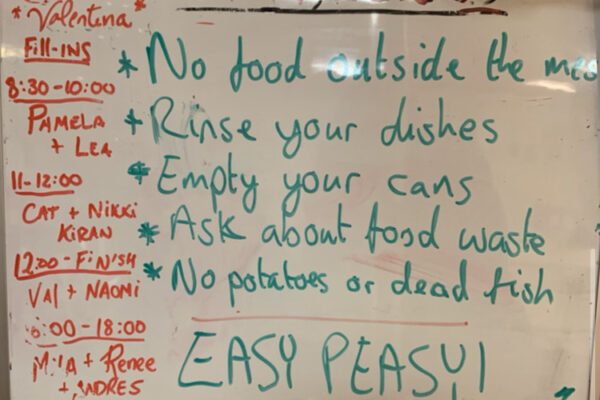 *Valentina*
Fill-INS
8:30-10:00
PAMELA
+ LEA
11-12:00
CAT + NIKKI
KIRAN
12:00-FiNiSH
VAL + NAOMI
:00-18:00
MiLA + Renee
+ ANDRES
* No food outside the mes
* Rinse your dishes
* Empty your cans
* Ask about food waste
* No potatoes or dead fish
EASY PEASY!